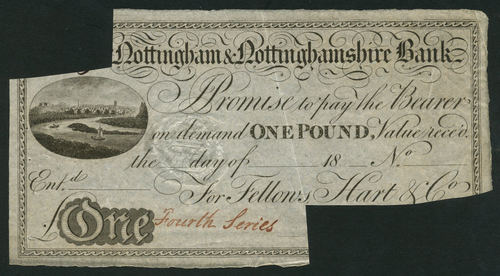 Nottingham & Nottinghamshire Bank
I Promise to pay the Bearer
on demand ONE POUND, Value recd.
the day of 18 No
Entd
For Fellows Hart & Co
£One Fourth Series